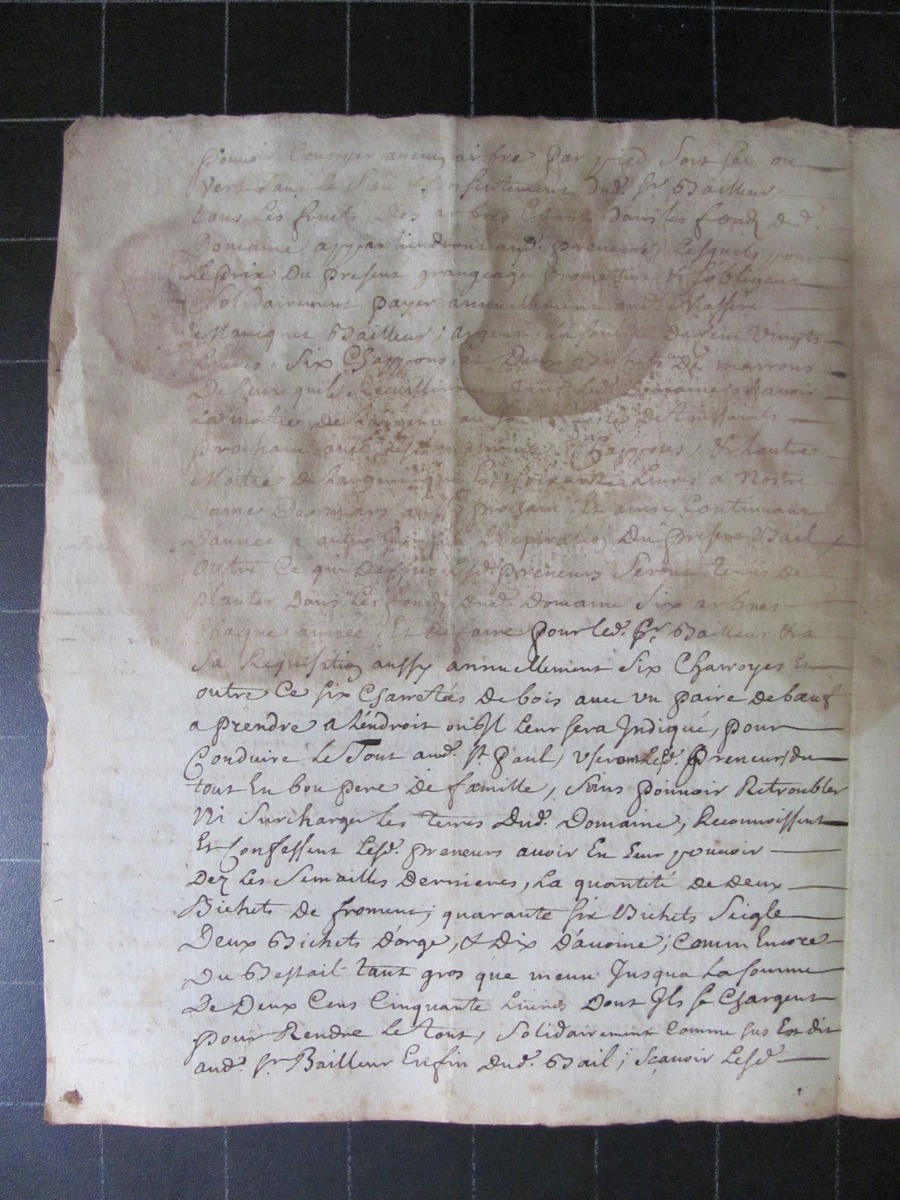 pouvoir Coupper aucun arbre par pied Soit sec ou
vert Sans Le Sceu & Consentement dud. Sr Bailleur,
tous Les fruits des arbres Estants dans les fonds dud.
Domaine appartiendront aud. preneurs, Lesquels pour
Le prix Du present grangeage promettent & Sobligent
Solidairement payer annuellement aud. Messire
Bailleur, argent La Somme de Cent Vingts
Livres, Six Chappons & Deux Bichets De marrons
De Ceux quils Recuilliront dans Led. Domaine, scavoir
La moitié de Largent au jour & feste de Toussaints
prochain avec Les marrons & Chappons, & Lautre
Moitié de Largent que Est soixante Livres a Nostre
Dame De mars aussy prochain Et ainsy Continuant
Dannée a autre Lexpiration Du present Bail
outre Ce que Dessus Lesd. preneurs Seront tenus de
planter Dans Les fonds dud. Domaine Six arbres
Chaque année Et de faire pour led. Sr Bailleur & a
Sa Requisition aussy annuellement Six Charroyes Et
outre Ce six Charretées De bois avec un paire de bœuf
a prendre a Lendroit ou Il Leur sera Indiqué, pour
Conduire Le Tout aud. St Paul, Useront Lesd. preneurs du
tout En bon pere de famille, Sans pouvoir Retroubler
Ni Surcharger les terres Dud. Domaine, Reconnoissent
Et Confessent Lesd. preneurs avoir En Leur pouvoir
Dez Les Semailles Dernieres, La quantité de deux
Bichets De froment, quarante six Bichets Seigle
Deux Bichets D'orge, & Dix D'avoine; Comm Encore
Du Bestail tant gros que menu Jusqua La somme
De Deux Cens Cinquante Livres Dont Ils se Chargent
pour Rendre Le tout, Solidairement Comme sus Est dit
aud. Sr Bailleur En fin Dud. Bail; Sçavoir Lesd.